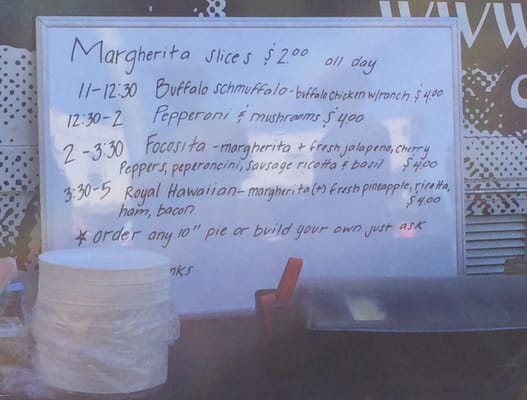 www
Margherita slices $2.00 all day
11-12:30 Buffalo schmuffalo - buffalo chicken w/ranch $4.00
12:30-2 Pepperoni & mushrooms $4.00
2-3:30 Focosita - margherita + fresh jalapeno, cherry
Peppers, peperoncini, sausage ricotta & basil $4.00
3:30-5 Royal Hawaiian - margherita (+) fresh pineapple, ricotta,
ham, bacon $4.00
* order any 10" pie or build your own just ask